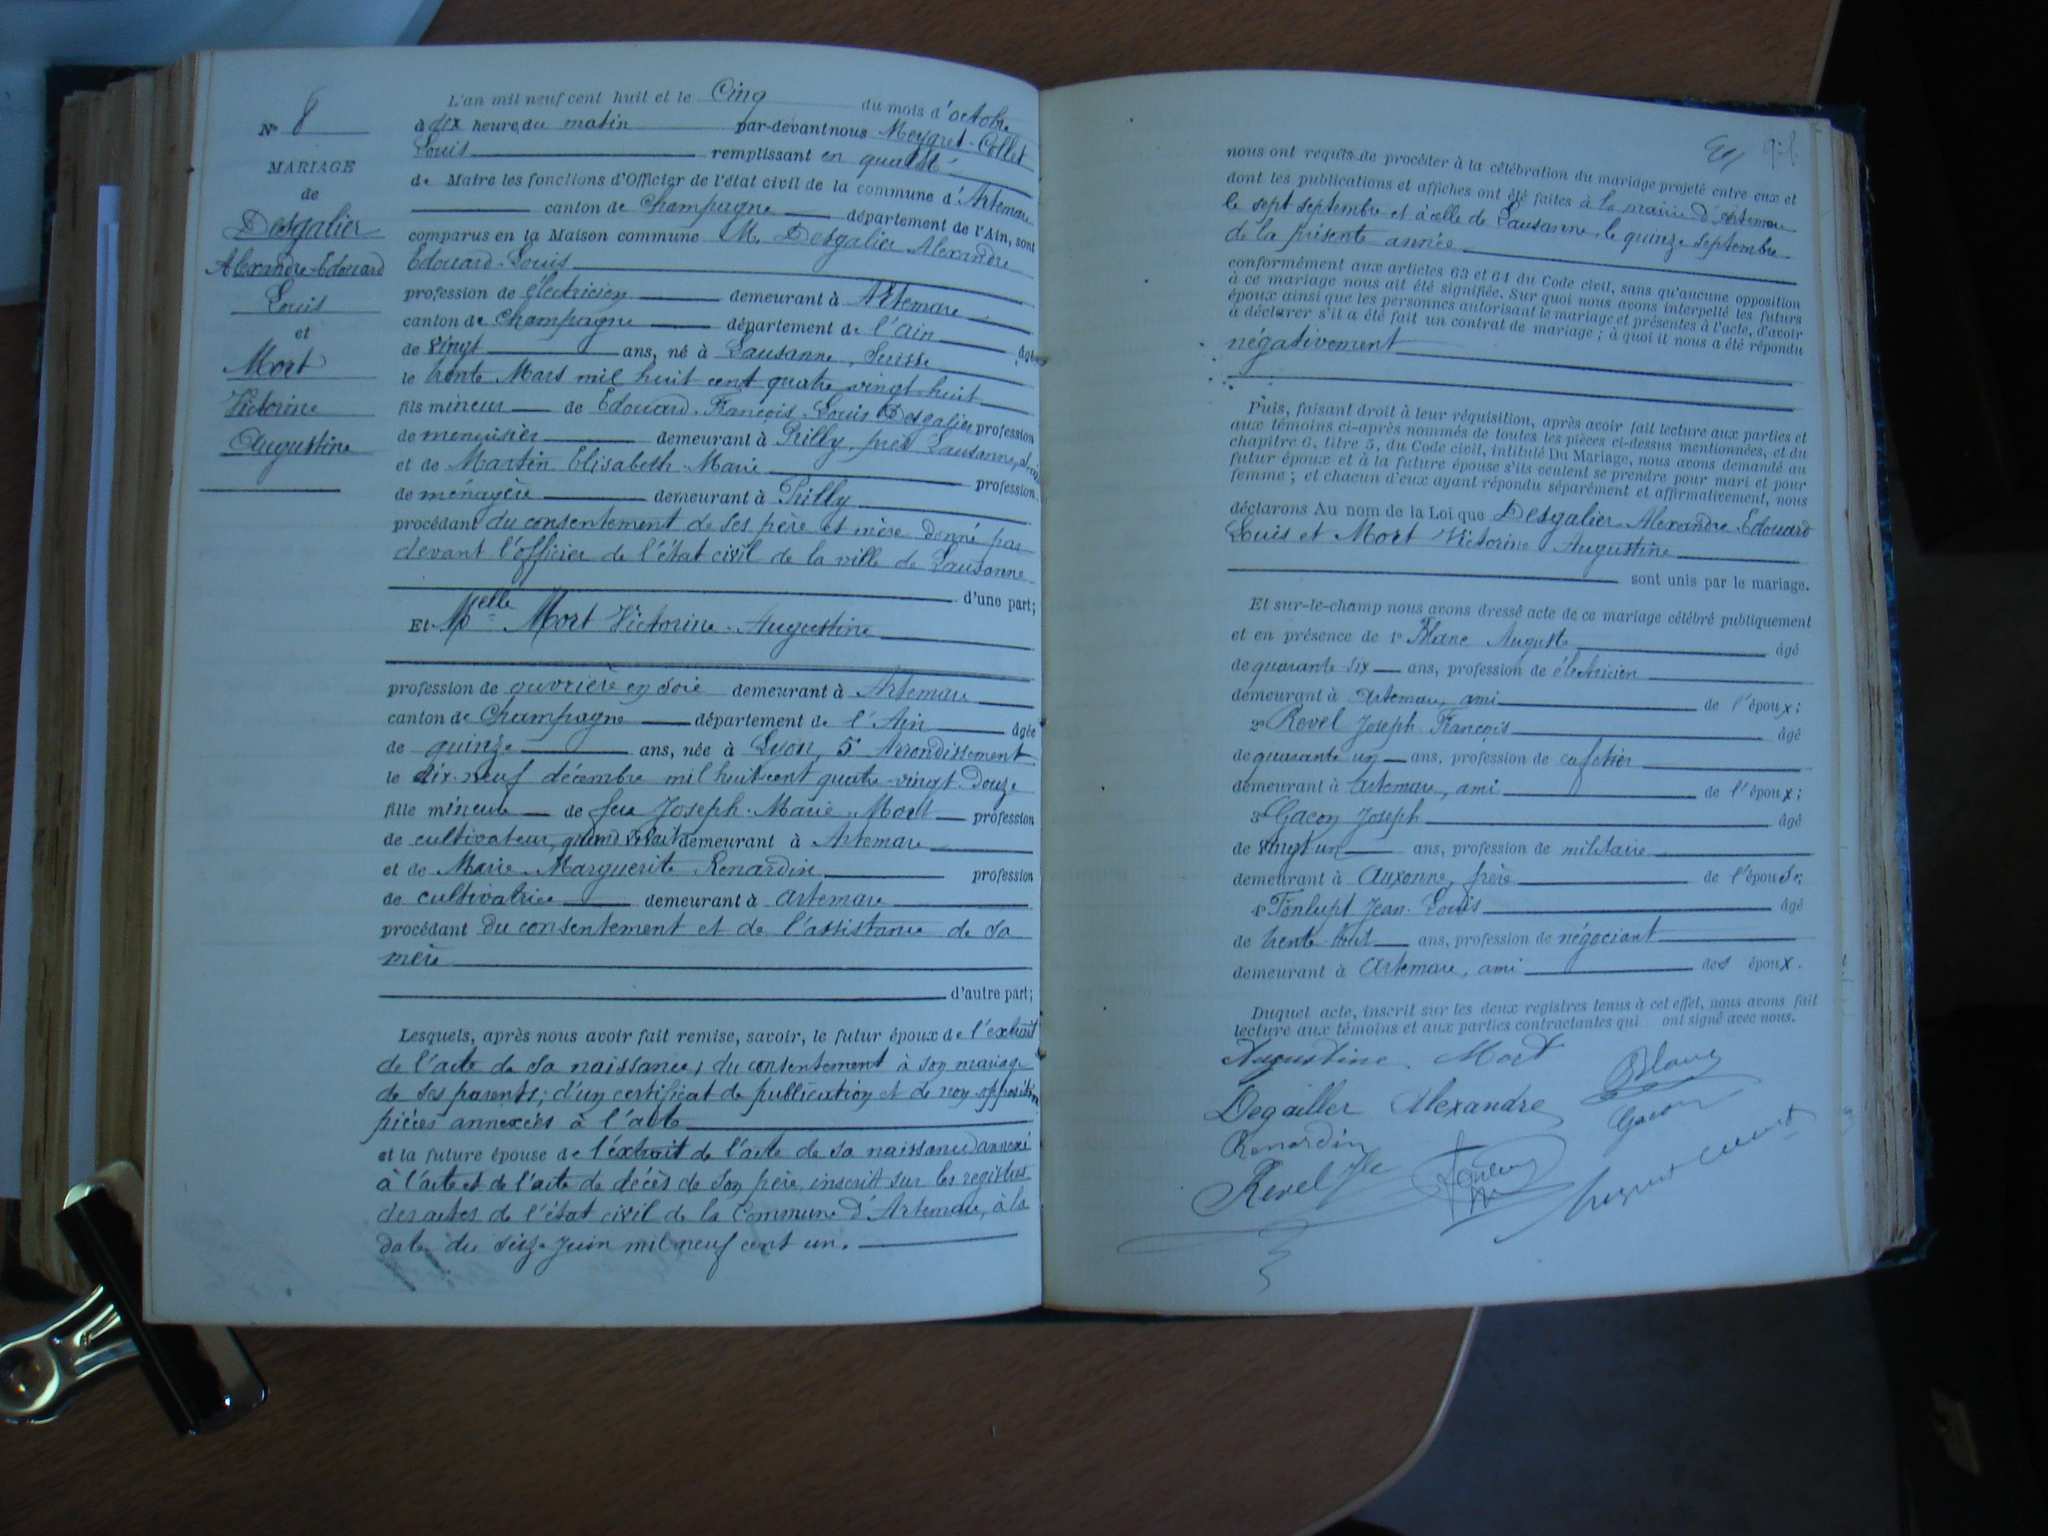 N° 8
MARIAGE
de
Desgalier
Alexandre-Edouard
Louis
et
Mort
Victorine
Augustine
L'an mil neuf cent huit et le Cinq du mois d'octobre
à dix heure du matin par-devant nous Meygret-Collet
Louis remplissant en qualité
de Maire les fonctions d'Officier de l'état civil de la commune d'Artemare
canton de Champagne département de l'Ain, sont
comparus en la Maison commune M. Desgalier Alexandre
Edouard-Louis
profession de électricien demeurant à Artemare
canton de Champagne département de l'Ain âgé
de vingt ans, né à Lausanne, Suisse
le trente Mars mil huit cent quatre vingt huit
fils mineur de Edouard-François-Louis Desgalier profession
de menuisier demeurant à Prilly, près Lausanne,
et de Martin Elisabeth-Marie profession
de ménagère demeurant à Prilly
procédant du consentement de ses père et mère donné par
devant l'officier de l'état civil de la ville de Lausanne
d'une part;
Et Melle Mort Victorine-Augustine
profession de ouvrière en soie demeurant à Artemare
canton de Champagne département de l'Ain âgée
de quinze ans, née à Lyon, 5e Arrondissement
le dix-neuf décembre mil huit cent quatre-vingt-douze
fille mineure de feu Joseph-Marie-Mort profession
de cultivateur, quand vivait demeurant à Artemare
et de Marie-Marguerite Renardin profession
de cultivatrice demeurant à Artemare
procédant du consentement et de l'assistance de sa
mère
d'autre part;
Lesquels, après nous avoir fait remise, savoir, le futur époux de l'extrait
de l'acte de sa naissance, du consentement à son mariage
de ses parents; d'un certificat de publication et de non opposition
pièces annexées à l'acte
et la future épouse de l'extrait de l'acte de sa naissance annexé
à l'acte et de l'acte de décès de son père, inscrit sur les registres
des actes de l'état civil de la Commune d'Artemare, à la
date du seize Juin mil neuf cent un.
nous ont requis de procéder à la célébration du mariage projeté entre eux et
dont les publications et affiches ont été faites à la mairie d'Artemare
le sept septembre et à celle de Lausanne, le quinze septembre
de la présente année
conformément aux articles 63 et 64 du Code civil, sans qu'aucune opposition
à ce mariage nous ait été signifiée. Sur quoi nous avons interpellé les futurs
époux ainsi que les personnes autorisant le mariage et présentes à l'acte, d'avoir
à déclarer s'il a été fait un contrat de mariage; à quoi il nous a été répondu
négativement
Puis, faisant droit à leur réquisition, après avoir fait lecture aux parties et
aux témoins ci-après nommés de toutes les pièces ci-dessus mentionnées, et du
chapitre 6, titre 5, du Code civil, intitulé Du Mariage, nous avons demandé au
futur époux et à la future épouse s'ils veulent se prendre pour mari et pour
femme; et chacun d'eux ayant répondu séparément et affirmativement, nous
déclarons Au nom de la Loi que Desgalier Alexandre Edouard
Louis et Mort Victorine Augustine
sont unis par le mariage.
Et sur-le-champ nous avons dressé acte de ce mariage célébré publiquement
et en présence de 1° Blanc Auguste âgé
de quarante six ans, profession de électricien
demeurant à Artemare, ami de l'époux;
2° Revel Joseph François âgé
de quarante un ans, profession de cafetier
demeurant à Artemare, ami de l'époux;
3° Gacon Joseph âgé
de vingt un ans, profession de militaire
demeurant à Auxonne, frère de l'épouse;
4° Tonlupt Jean-Louis âgé
de trente-huit ans, profession de négociant
demeurant à Artemare, ami des époux.
Duquel acte, inscrit sur les deux registres tenus à cet effet, nous avons fait
lecture aux témoins et aux parties contractantes qui ont signé avec nous.
Augustine Mort Blanc
Degailler Alexandre Gacon
Renardin
Revel